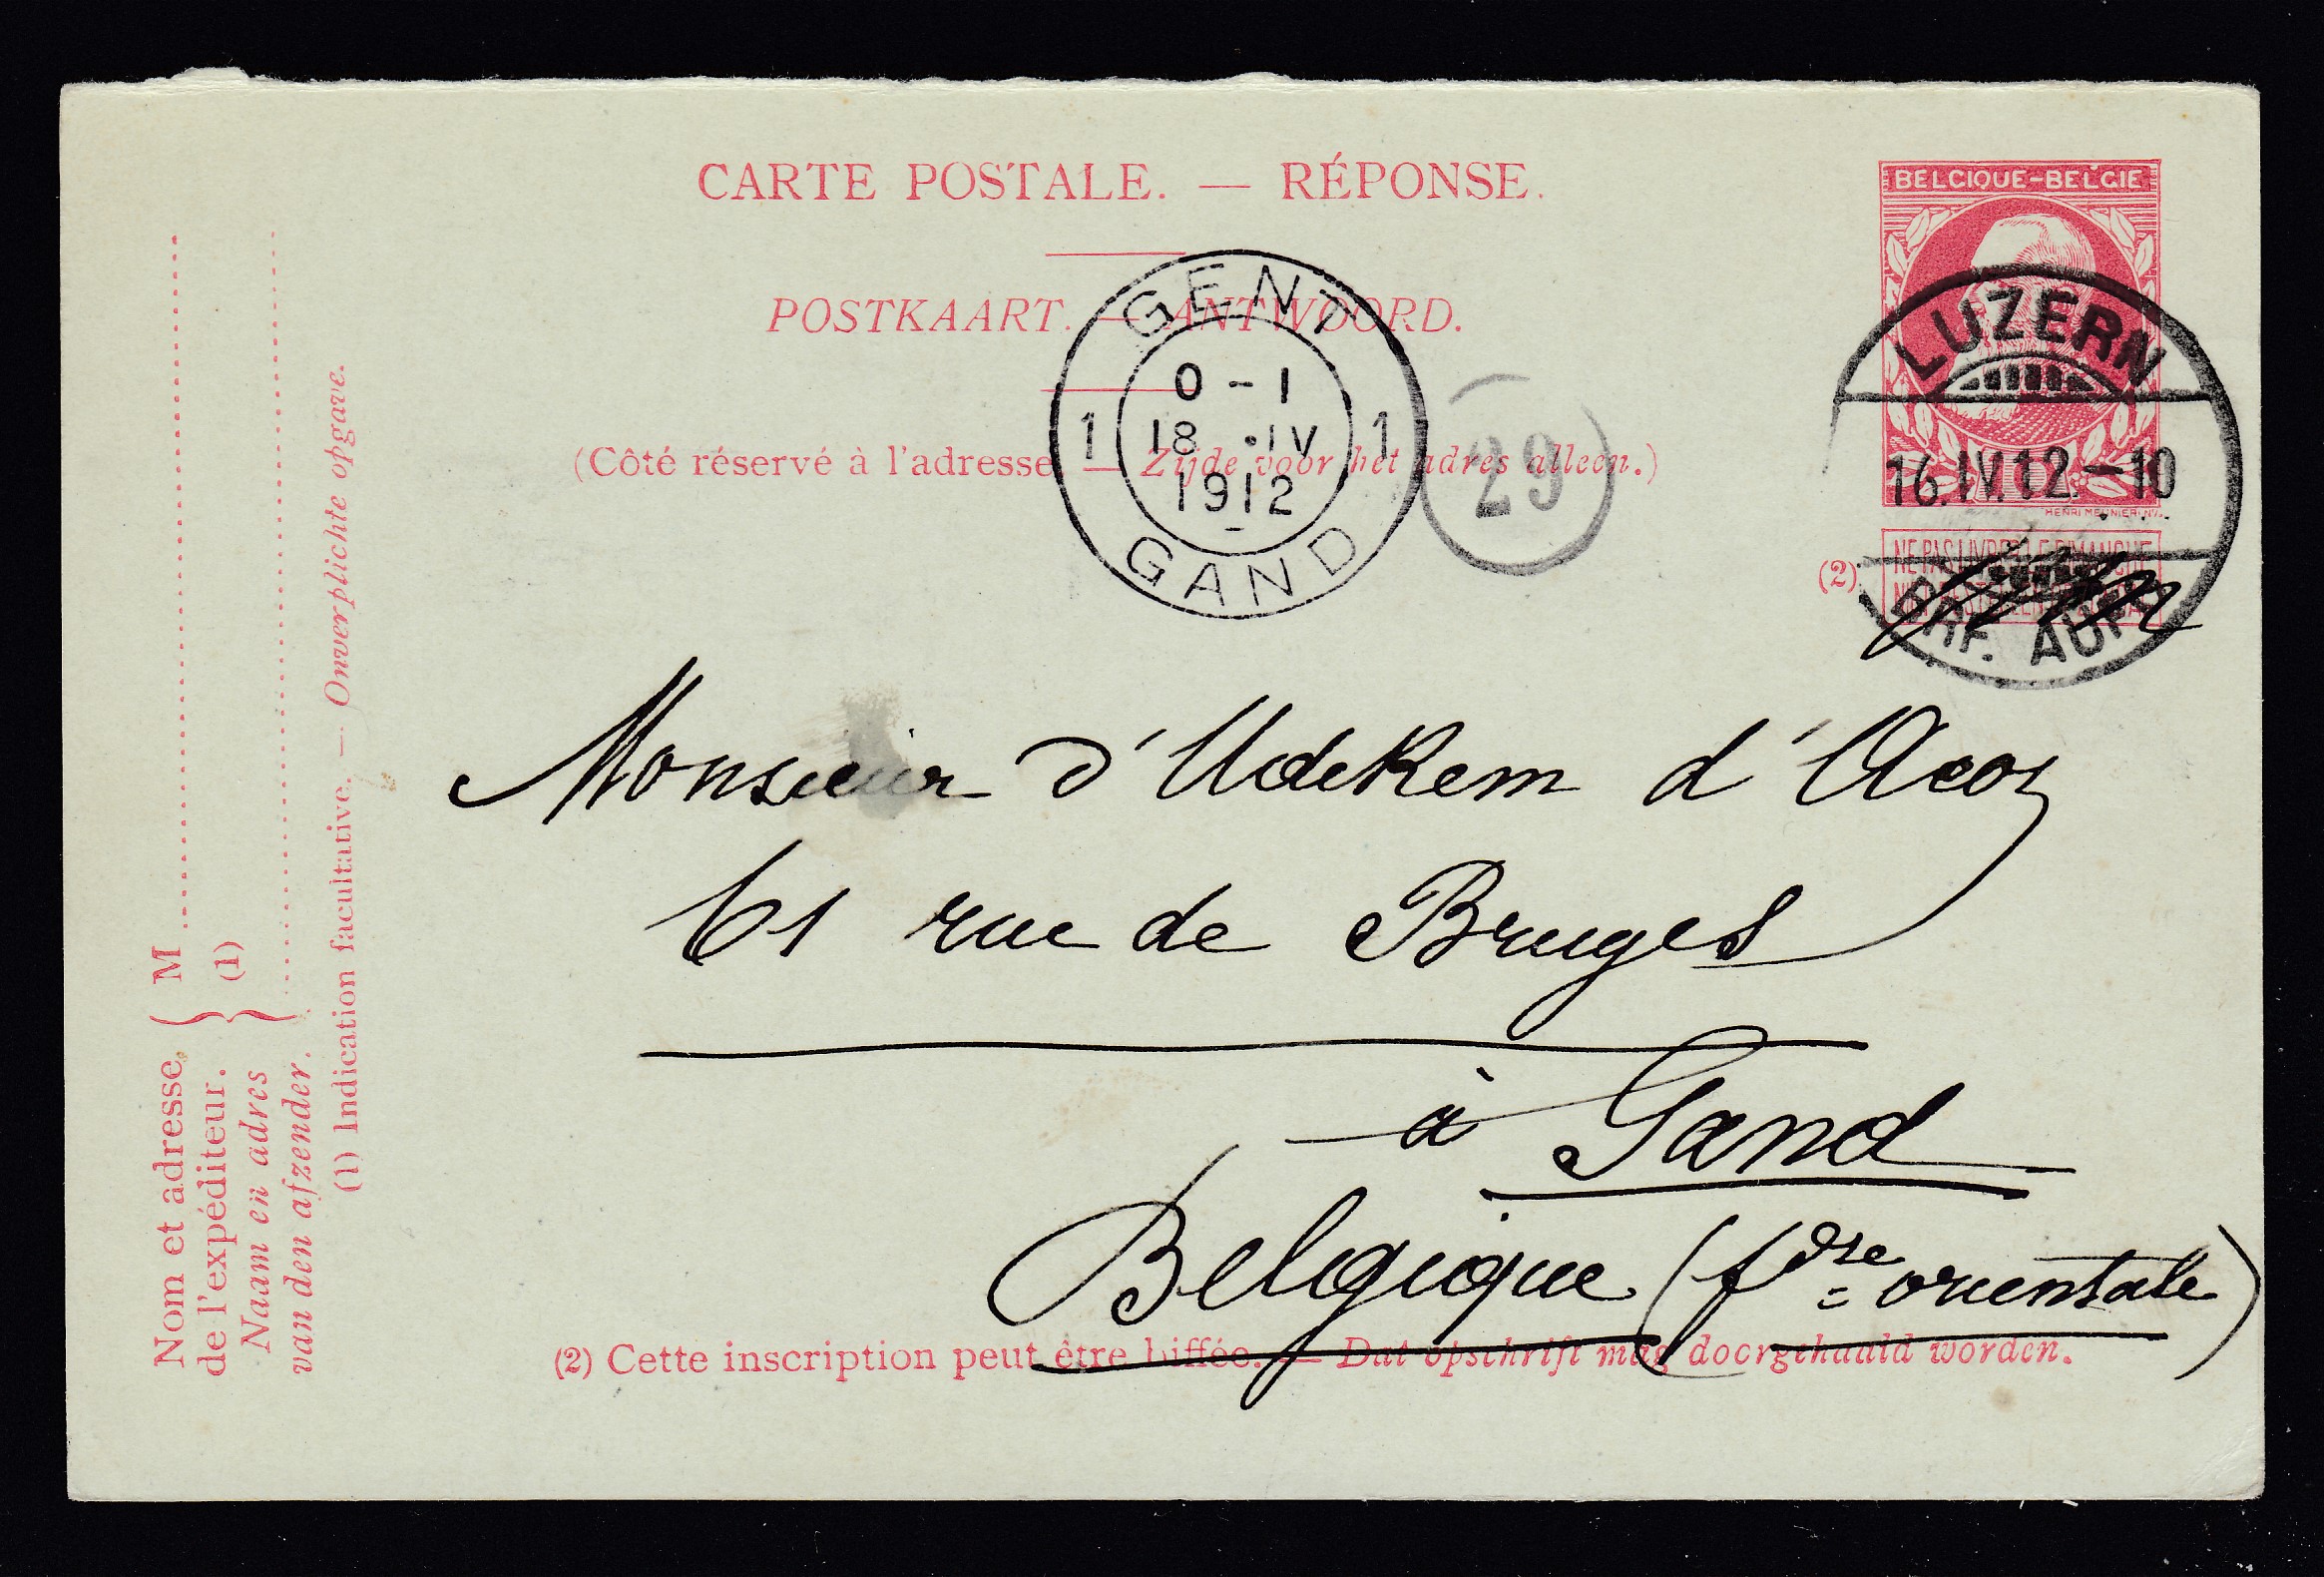 CARTE POSTALE. — RÉPONSE.
POSTKAART. — ANTWOORD.
(Côté réservé à l'adresse. — Zijde voor het adres alleen.)
BELGIQUE-BELGIE
HENRI MEUNIER INV.
(2)
NE PAS LIVRER LE DIMANCHE
GENT
0 - 1
1 18 .IV 1
1912
GAND
29
LUZERN
16.IV.12.-10
BRF. AUFG
Monsieur d'Udekem d'Acoz
61 rue de Bruges
à Gand
Belgique (fdre orientale)
(2) Cette inscription peut être biffée. — Dat opschrift mag doorgehaald worden.
Nom et adresse
de l'expéditeur.
Naam en adres
van den afzender.
M
(1)
(1) Indication facultative. — Onverplichte opgave.